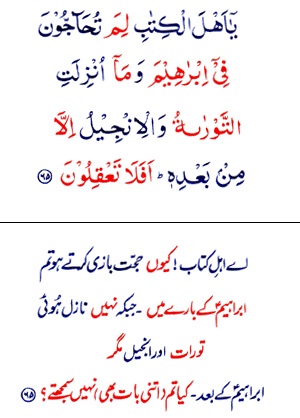 يٰٓاَهْلَ الْكِتٰبِ لِمَ تُحَآجُّوْنَ
فِيْٓ اِبْرٰهِيْمَ وَمَآ اُنْزِلَتِ
التَّوْرٰىةُ وَالْاِنْجِيْلُ اِلَّا
مِنْۢ بَعْدِهٖ ؕ اَفَلَا تَعْقِلُوْنَ ﴿۶۵﴾
اے اہلِ کتاب! کیوں حجت بازی کرتے ہو تم
ابراہیمؑ کے بارے میں ۔ جبکہ نہیں نازل ہُوئی
تورات اور انجیل مگر
ابراہیمؑ کے بعد۔ کیا تم (اتنی بات بھی) نہیں سمجھتے؟ ﴿۶۵﴾